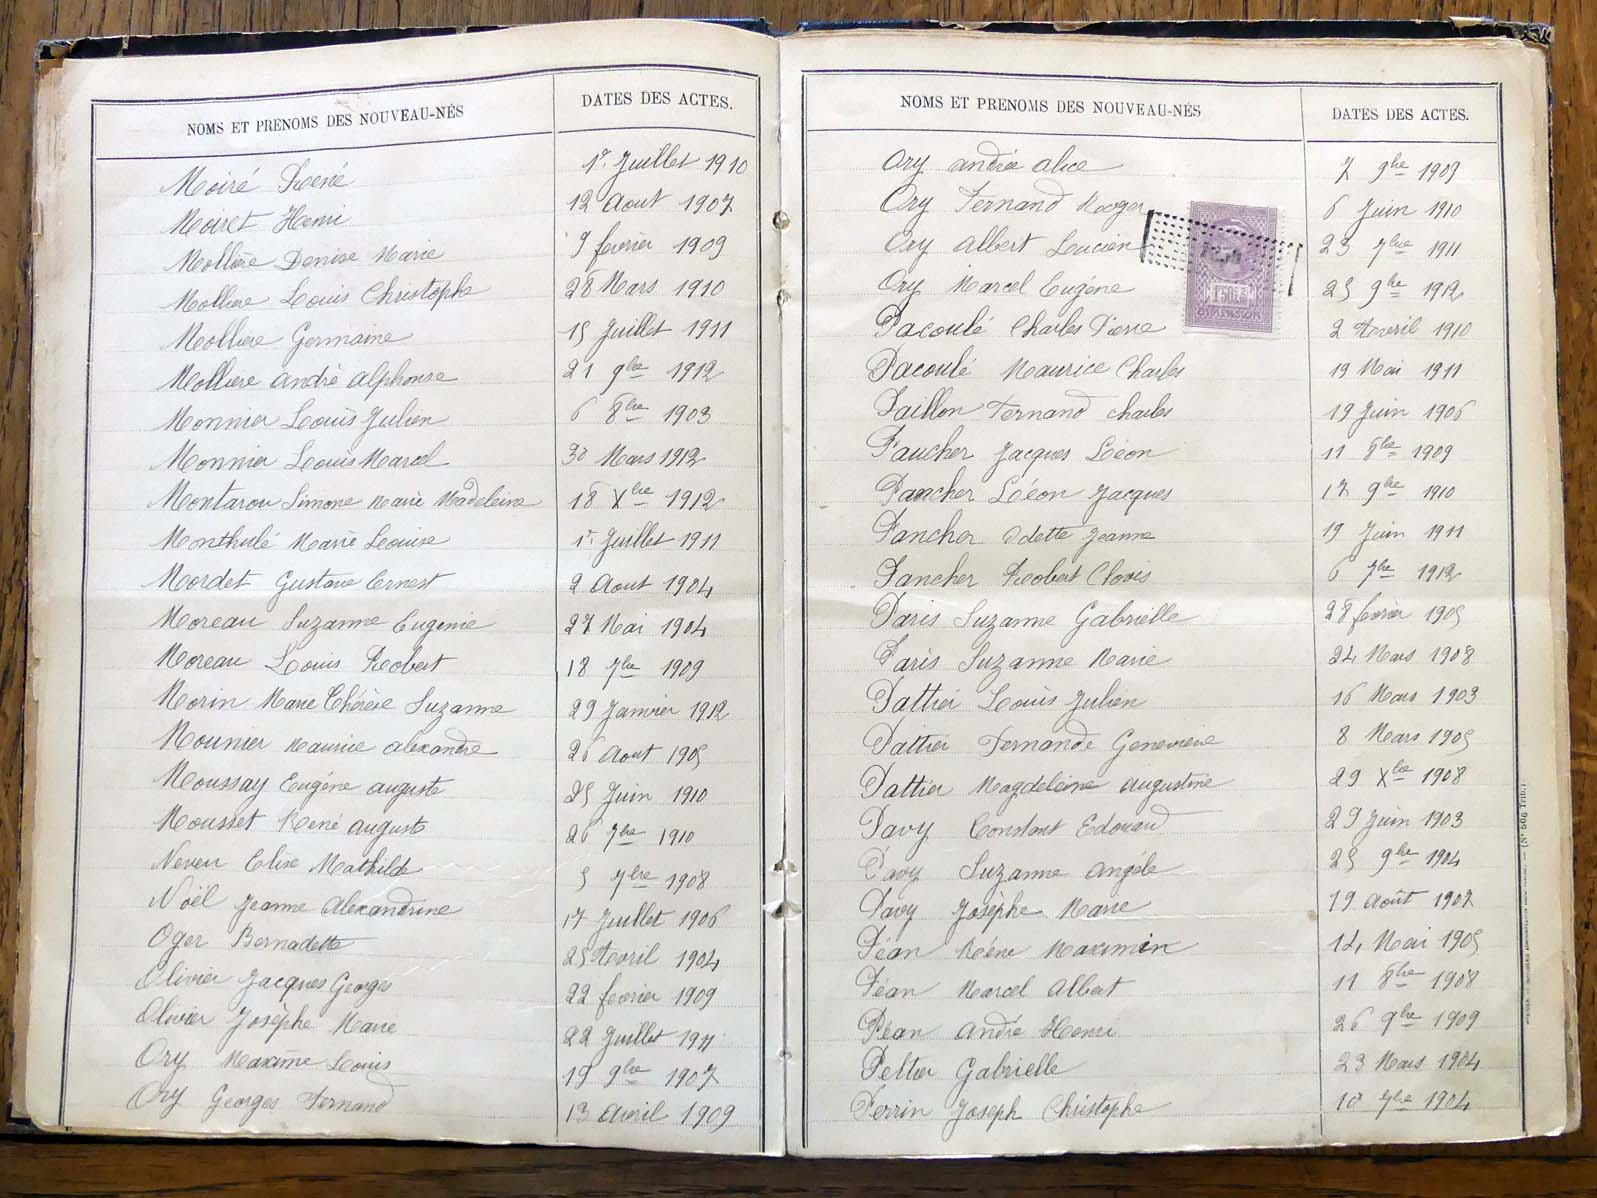 NOMS ET PRENOMS DES NOUVEAU-NÉS DATES DES ACTES.
Moiré René 1r. Juillet 1910
Moiret Henri 12 Aout 1907
Mollière Denise Marie 9 fevrier 1909
Molliere Louis Christophe 28 Mars 1910
Molliere Germaine 15 Juillet 1911
Molliere andré alphonse 21 9bre 1912
Monnier Louis Julien 6 8bre 1903
Monnier Louis Marcel 30 Mars 1912
Montarou Simone Marie Madeleine 18 Xbre 1912
Monthulé Marie Louise 1r. Juillet 1911
Mordet Gustave Ernest 2 Aout 1904
Moreau Suzanne Eugenie 27 Mai 1904
Moreau Louis Robert 18 7bre 1909
Morin Marie Thérèse Suzanne 29 Janvier 1912
Mounier Maurice alexandre 26 Aout 1905
Moussay Eugène auguste 25 Juin 1910
Mousset René auguste 26 7bre 1910
Neveu Elise Mathilde 5 7bre 1908
Noël Jeanne Alexandrine 17 Juillet 1906
Oger Bernadette 25 Avril 1904
Olivier Jacques Georges 22 fevrier 1909
Olivier Josèphe Marie 22 Juillet 1911
Ory Maxime Louis 19 9bre 1907
Ory Georges Fernand 13 avril 1909
NOMS ET PRENOMS DES NOUVEAU-NÉS DATES DES ACTES.
Ory andrée alice 7 9bre 1909
Ory Fernand Roger 6 Juin 1910
Ory Albert Lucien 23 7bre 1911
Ory Marcel Eugène 25 9bre 1912
1F50c
DIMENSION
Pacoulé Charles Pierre 2 Avril 1910
Pacoulé Maurice Charles 19 Mai 1911
Paillon Fernand charles 19 Juin 1906
Paucher Jacques Léon 11 8bre 1909
Pancher Léon Jacques 17 9bre 1910
Pancher Odette Jeanne 19 Juin 1911
Pancher Robert Clovis 6 7bre 1912
Paris Suzanne Gabrielle 28 fevrier 1905
Paris Suzanne Marie 24 Mars 1908
Pattier Louis Julien 16 Mars 1903
Pattier Fernande Geneviève 8 Mars 1905
Pattier Magdeleine Augustine 29 Xbre 1908
Pavy Constant Edouard 29 Juin 1903
Pavy Suzanne Angèle 25 9bre 1904
Pavy Josèphe Marie 19 Août 1907
Péan Réné Maximin 14 Mai 1905
Péan Marcel Albert 11 8bre 1908
Péan André Henri 26 9bre 1909
Peltier Gabrielle 23 Mars 1904
Perrin Joseph Christophe 10 7bre 1904